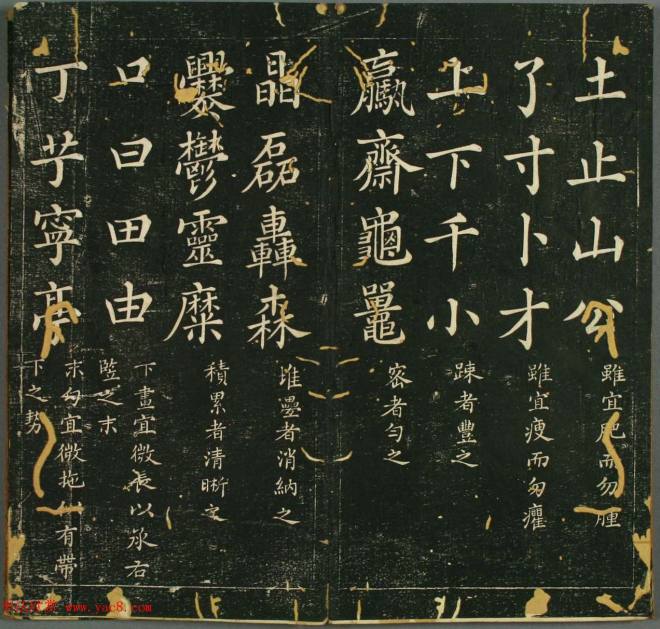 土止山公 雖宜肥而勿腫
了寸卜才 雖宜瘦而勿癯
上下千小 踈者豐之
齋龜鼉 密者勻之
晶磊轟森 堆壘者消納之
爨鬱靈糜 積累者清晰之
口曰田由 下畫宜微長以承右
豎之末
丁寧亭 末勾宜微拖似有帶
下之勢
www.yac8.com